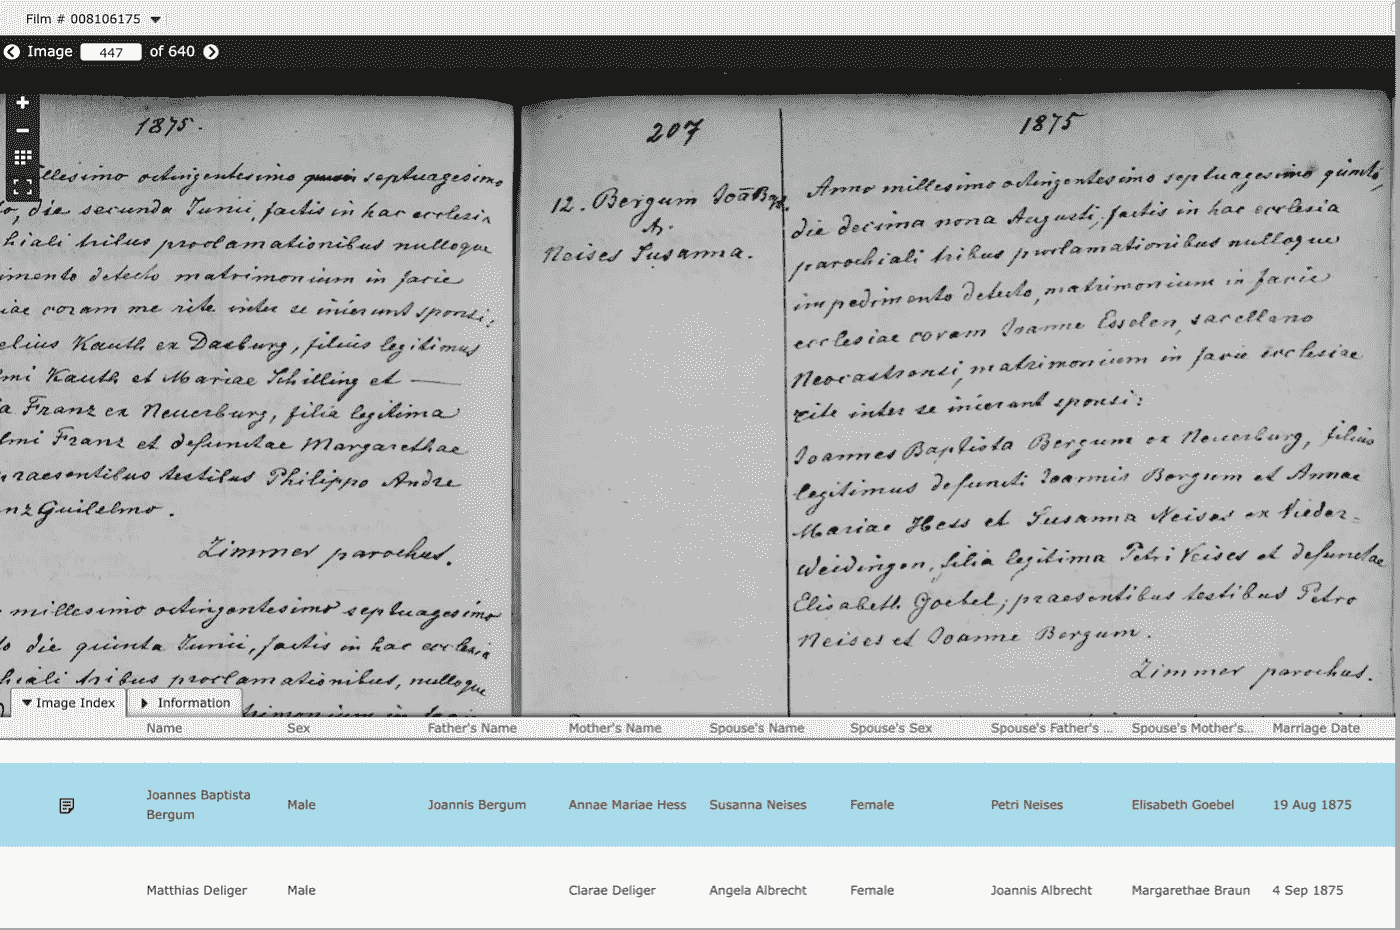 Film # 008106175
Image 447 of 640
1875.
illesimo octingentesimo septuagesimo
o, die secunda Junii, factis in hac ecclesia
hiali tribus proclamationibus nulloque
imento detecto matrimonium in facie
iae coram me rite inter se inierunt sponsi:
elius Kauth ex Dasburg, filius legitimus
lmi Kauth et Mariae Schilling et —
a Franz ex Neuerburg, filia legitima
lmi Franz et defunctae Margarethae
praesentibus testibus Philippo Andre
nz Guilelmo.
Zimmer parochus.
millesimo octingentesimo septuagesimo
to die quinta Junii, factis in hac ecclesia
hiali tribus proclamationibus, nulloque
trimonium in facie
207
12. Bergum Joā Bapt.
&
Neises Susanna.
1875
Anno millesimo octingentesimo septuagesimo quinto,
die decima nona Augusti, factis in hac ecclesia
parochiali tribus proclamationibus nulloque
impedimento detecto, matrimonium in facie
ecclesiae coram Joanne Esselen, sacellano
Neocastrensi, matrimonium in facie ecclesiae
rite inter se inierant sponsi:
Joannes Baptista Bergum ex Neuerburg, filius
legitimus defuncti Joannis Bergum et Annae
Mariae Hess et Susanna Neises ex Nieder-
Weidingen, filia legitima Petri Neises et defunctae
Elisabeth Goebel; praesentibus testibus Petro
Neises et Joanne Bergum.
Zimmer parochus.
Image Index Information
Name Sex Father's Name Mother's Name Spouse's Name Spouse's Sex Spouse's Father's ... Spouse's Mother's... Marriage Date
Joannes Baptista Bergum Male Joannis Bergum Annae Mariae Hess Susanna Neises Female Petri Neises Elisabeth Goebel 19 Aug 1875
Matthias Deliger Male Clarae Deliger Angela Albrecht Female Joannis Albrecht Margarethae Braun 4 Sep 1875